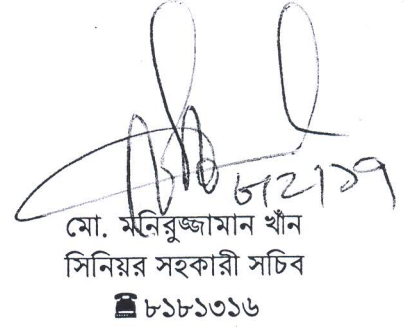 ৮।২।১৭
মো. মনিরুজ্জামান খাঁন
সিনিয়র সহকারী সচিব
☎ ৮১৮১৩১৬